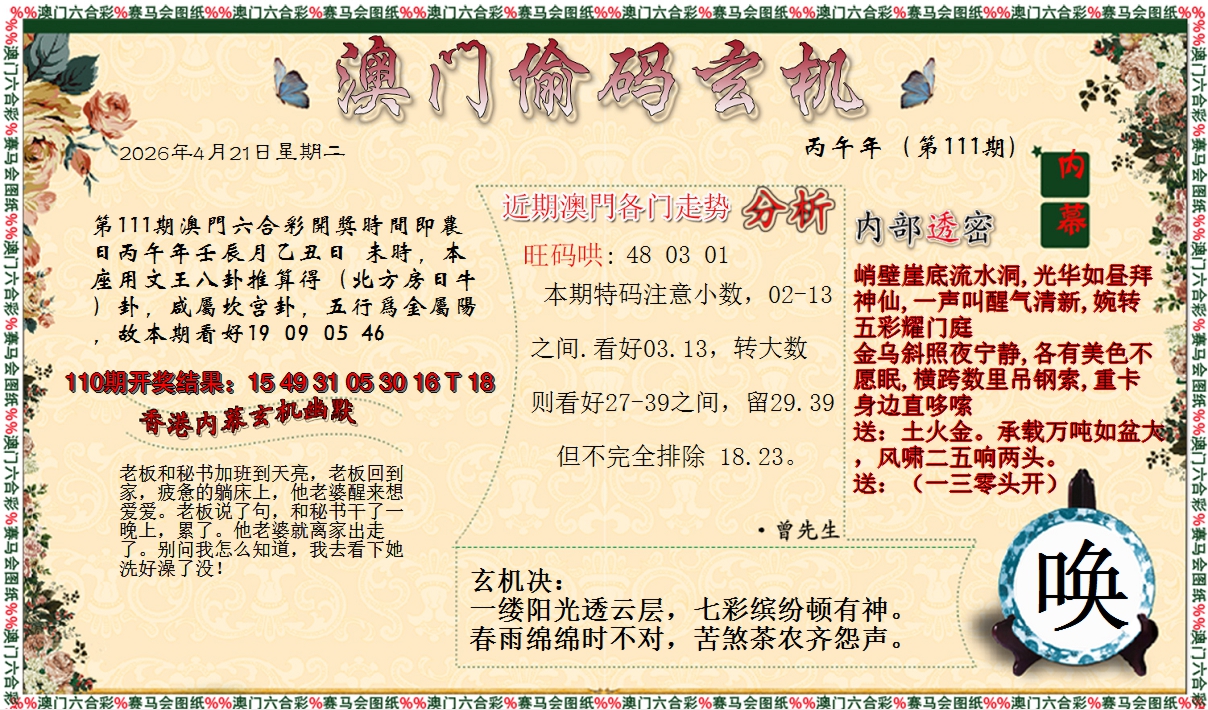 %%澳门六合彩%赛马会图纸%%澳门六合彩%赛马会图纸%%澳门六合彩%赛马会图纸%%澳门六合彩%赛马会图纸%%澳门六合彩%赛马会图纸%%澳门六合彩%赛马会图纸%%
澳门偷码玄机
2026年4月21日星期二
丙午年（第111期）
内幕
第111期澳門六合彩開獎時間即農
日丙午年壬辰月乙丑日 未時，本
座用文王八卦推算得（北方房日牛
）卦，咸屬坎宫卦，五行爲金屬陽
，故本期看好19 09 05 46
110期开奖结果：15 49 31 05 30 16 T 18
香港内幕玄机幽默
老板和秘书加班到天亮，老板回到
家，疲惫的躺床上，他老婆醒来想
爱爱。老板说了句，和秘书干了一
晚上，累了。他老婆就离家出走
了。别问我怎么知道，我去看下她
洗好澡了没！
近期澳門各门走势 分析
旺码哄: 48 03 01
本期特码注意小数，02-13
之间.看好03.13，转大数
则看好27-39之间，留29.39
但不完全排除 18.23。
·曾先生
内部透密
峭壁崖底流水洞,光华如昼拜
神仙,一声叫醒气清新,婉转
五彩耀门庭
金乌斜照夜宁静,各有美色不
愿眠,横跨数里吊钢索,重卡
身边直哆嗦
送：土火金。承载万吨如盆大
，风啸二五响两头。
送：（一三零头开）
玄机决：
一缕阳光透云层，七彩缤纷顿有神。
春雨绵绵时不对，苦煞茶农齐怨声。
唤
%%澳门六合彩%赛马会图纸%%澳门六合彩%赛马会图纸%%澳门六合彩%赛马会图纸%%澳门六合彩%赛马会图纸%%澳门六合彩%赛马会图纸%%澳门六合彩%赛马会图纸%%